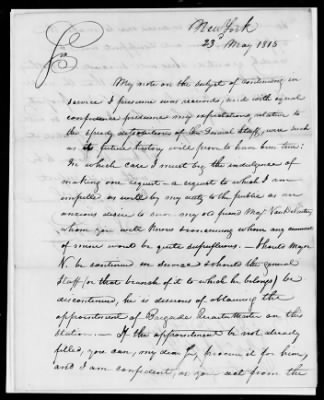 New York
23 May 1815
My note on the subject of continuing in
service I presume was received, and with equal
confidence presume my expectations, relative to
the speedy of the General Staff, were such
as its future history will prove to have been true:
In which case I must beg the indulgence of
making one request - a request to which I am
impelled as well by my duty to the public as an
anxious desire to serve my old friend Maj.
whom you well know concerning whom any amount
of mine would be quite superfluous. - Should Major
N. be continued in service & should the general
Staff (or that branch of it to which he belongs) be
discontinued, he is desirous of obtaining the
appointment of Brigade Quarter Master on this
Station. - If the appointment be not already
filled, you can, my dear procure it for him,
and I am confident, as you act from the